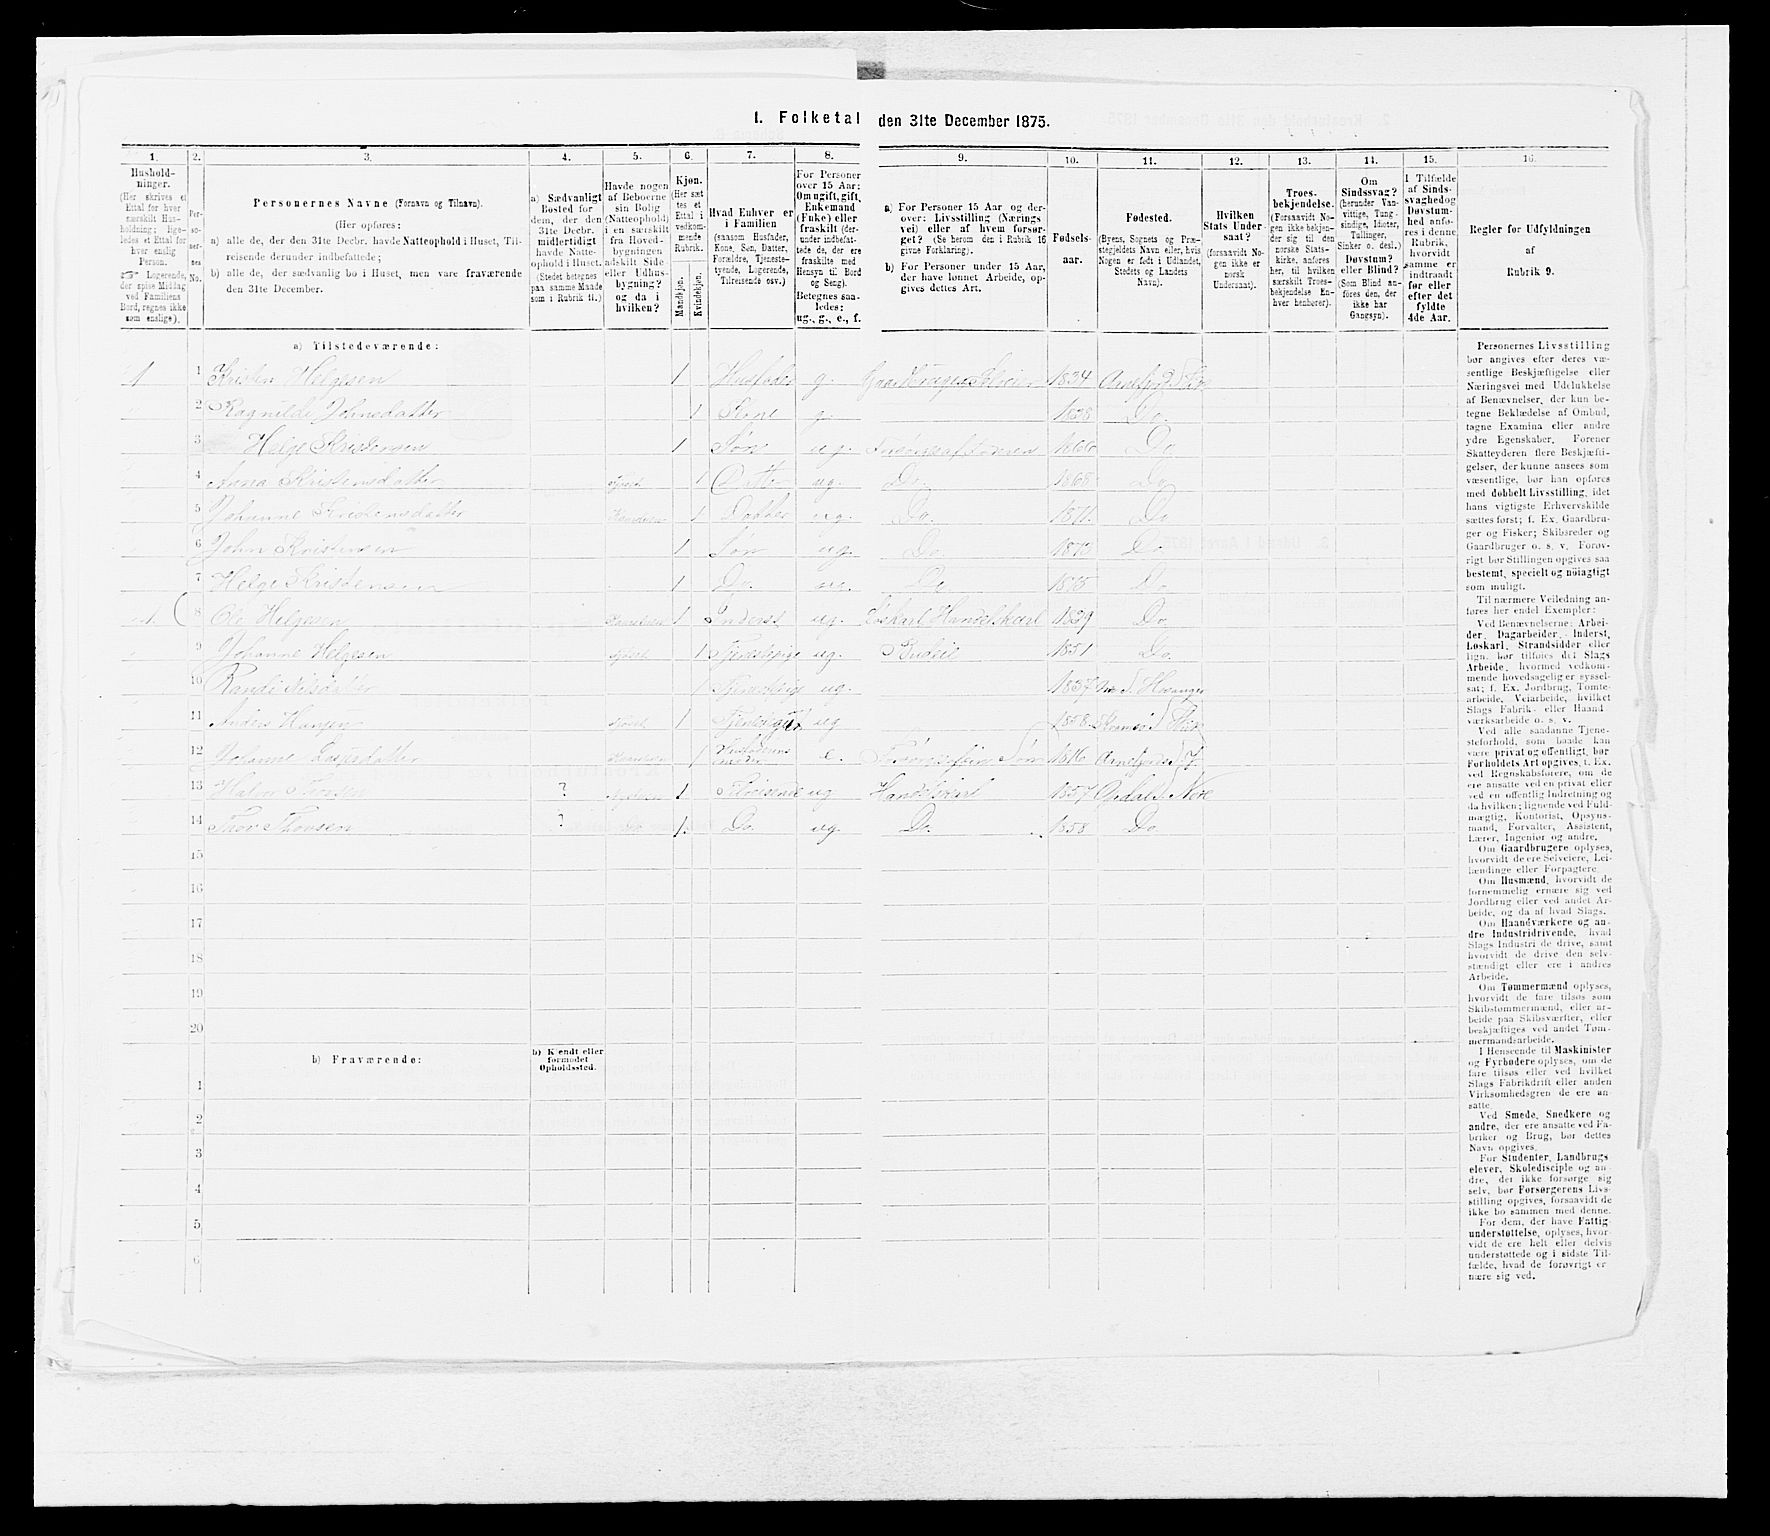 1. Folketal den 31te December 1875.
1. 2. 3. 4. 5. 6. 7. 8. 9. 10. 11. 12. 13. 14. 15. 16.
Hushold-
ninger.
(Her skrives et
Ettal for hver
særskilt Hus-
holdning; lige-
ledes et Ettal for
hver enslig
Person.
☞ Logerende,
der spise Middag
ved Familiens
Bord, regnes ikke
som enslige).
Per-
so-
ner-
nes
No.
Personernes Navne (Fornavn og Tilnavn).
(Her opføres:
a) alle de, der den 31te Decbr. havde Natteophold i Huset, Til-
reisende derunder indbefattede;
b) alle de, der sædvanlig bo i Huset, men vare fraværende
den 31te December.
a) Sædvanligt
Bosted for
dem, der den
31te Decbr.
midlertidigt
havde Natte-
ophold i Huset.
(Stedet betegnes
paa samme Maade
som i Rubrik 11.)
Havde nogen
af Beboerne
sin Bolig
(Natteophold)
i en særskilt
fra Hoved-
bygningen
adskilt Side-
eller Udhus-
bygning?
og da i
hvilken?
Kjøn.
(Her sæt
tes et
Ettal i
vedkom-
mende
Rubrik.
Mandkjøn.
Kvindekjøn.
Hvad Enhver er
i Familien
(saasom Husfader,
Kone, Søn, Datter,
Forældre, Tjeneste-
tyende, Logerende,
Tilreisende osv.)
For Personer
over 15 Aar:
Om ugift, gift,
Enkemand
(Enke) eller
fraskilt (der-
under indbefat-
tede de, der ere
fraskilte med
Hensyn til Bord
og Seng).
Betegnes saa-
ledes:
ug., g., e., f.
a) For Personer 15 Aar og der-
over: Livsstilling (Nærings
vei) eller af hvem forsør-
get? (Se herom den i Rubrik 16
givne Forklaring).
b) For Personer under 15 Aar,
der have lønnet Arbeide, op-
gives dettes Art.
Fødsels-
aar.
Fødested.
(Byens, Sognets og Præ-
stegjeldets Navn eller, hvis
Nogen er født i Udlandet,
Stedets og Landets
Navn).
Hvilken
Stats Under-
saat?
(forsaavidt No-
gen ikke er
norsk
Undersaat).
Troes-
bekjendelse.
(Forsaavidt No-
gen ikke bekjen-
der sig til den
norske Stats-
kirke, anføres
her, til hvilken
særskilt Troes-
bekjendelse En-
hver henhører).
Om
Sindssvag?
(herunder Van-
vittige, Tung-
sindige, Idioter,
Tullinger,
Sinker o. desl.)
Døvstum?
eller Blind?
(Som Blind an-
føres den, der
ikke har
Gangsyn).
I Tilfælde
af Sinds-
svaghed og
Døvstum-
hed anfø-
res i denne
Rubrik,
hvorvidt
samme er
indtraadt
før eller
efter det
fyldte
4de Aar.
Regler for Udfyldningen
af
Rubrik 9.
a) Tilstedeværende:
1 1 Kristen Helgesen 1 Husfader g. Gaardbruger Selveier 1834
2 Ragnilde Johnsdatter 1 Kone g. Do.
3 Helge Kristensen 1 Søn ug. 1866 Do
4 Anna Kristensdatter 1 Datter ug. Do. 1868 Do
5 Johanne Kristensdatter 1 Datter ug. Do. 1871. Do
6 John Kristensen 1 Søn ug. Do. Do.
7 Helge Kristensen 1 Do. ug. Do 1875 Do
1. 8 Ole Helgesen 1 Inderst ug. Løskarl Handelskarl 1829 Do.
9 Johanne Helgesen 1 Tjenestepige ug. Budeie 1851 Do.
10 Randi Nilsdatter 1 Tjenestepige ug. 1837
11 Anders Hansen 1 ug 1858
12 Johanne 1 Husfaderens Moder e. Søn
13 Halvor Thorsen ? 1. Tilreisende ug Handelskarl 1857 Opdal S. Nore
14 Thor Thorsen ? Do 1. Do. ug. Do. 1858 Do.
15
16
17
18
19
20
b) Fraværende:
b) Kjendt eller
formodet
Opholdssted.
1
2
3
4
5
6
Personernes Livsstilling
bør angives efter deres væ-
sentlige Beskjæftigelse eller
Næringsvei med Udelukkelse
af Benævnelser, der kun be-
tegne Beklædelse af Ombud,
tagne Examina eller andre
ydre Egenskaber. Forener
Skatteyderen flere Beskjæfti-
gelser, der kunne ansees som
væsentlige, bør han opføres
med dobbelt Livsstilling, idet
hans vigtigste Erhvervskilde
sættes først; f. Ex. Gaardbru-
ger og Fisker; Skibsreder og
Gaardbruger o. s. v. Forøv-
rigt bør Stillingen opgives saa
bestemt, specielt og nöiagtigt
som muligt.
Til nærmere Veiledning an-
føres her endel Exempler:
Ved Benævnelserne: Arbei-
der, Dagarbeider, Inderst,
Løskarl, Strandsidder eller
lign. bør tilføies det Slags
Arbeide, hvormed vedkom-
mende hovedsagelig er syssel-
sat; f. Ex. Jordbrug, Tomte-
arbeide, Veiarbeide, hvilket
Slags Fabrik- eller Haand
værksarbeide o. s. v.
Ved alle saadanne Tjene-
steforhold, som baade kan
være privat og offentligt, bør
Forholdets Art opgives, t. Ex.
ved Regnskabsførere, om de
ere ansatte ved en privat eller
ved en offentlig Indretning og
da hvilken; lignende ved Fuld-
mægtig, Kontorist, Opsyns-
mand, Forvalter, Assistent,
Lærer, Ingeniør og andre.
Om Gaardbrugere oplyses,
hvorvidt de ere Selveiere, Lei-
lændinge eller Forpagtere.
Om Husmænd, hvorvidt de
fornemmelig ernære sig ved
Jordbrug eller ved andet Ar-
beide, og da af hvad Slags.
Om Haandværkere og an-
dre Industridrivende, hvad
Slags Industri de drive, samt
hvorvidt de drive den selv-
stændigt eller ere i andres
Arbeide.
Om Tømmermænd oplyses,
hvorvidt de fare tilsøs som
Skibstømmermænd, eller ar-
beide paa Skibsværfter, eller
beskjæftiges ved andet Tøm-
mermandsarbeide.
I Henseende til Maskinister
og Fyrbødere oplyses, om de
fare tilsøs eller ved hvilket
Slags Fabrikdrift eller anden
Virksomhedsgren de ere an-
satte.
Ved Smede, Snedkere og
andre, der ere ansatte ved Fa-
briker og Brug, bør dettes
Navn opgives.
For Studenter, Landbrugs
elever, Skoledisciple og an-
dre, der ikke forsørge sig
selv, bør Forsørgerens Livs-
stilling opgives, forsaavidt de
ikke bo sammen med denne.
For dem, der have Fattig-
understøttelse, oplyses, hvor-
vidt de ere helt eller delvis
understøttede og i sidste Til-
fælde, hvad de forøvrigt er-
nære sig ved.